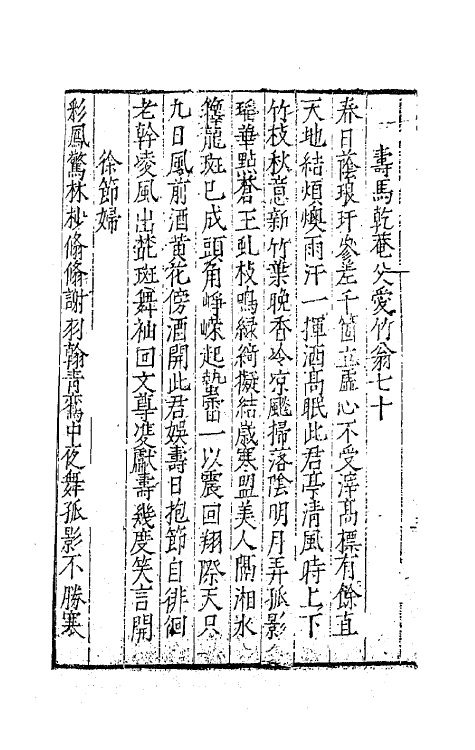 壽馬乾菴父愛竹翁七十
春日蔭琅玕參差千箇立虛心不受滓髙標有餘直
天地結煩燠雨汗一揮洒髙眠此君亭清風時上下
竹枝秋意新竹葉晚香冷凉飈掃落陰明月弄孤影
瑶華點蒼玉虬枝鳴緑綺擬結歳寒盟美人隅湘水
籜龍斑已成頭角崢嶸起蟄雷一以震回翔際天只
九日風前酒黄花傍酒開此君娯壽日抱節自徘徊
老幹凌風出斑舞袖回文尊凌獻壽幾度笑言開
徐節婦
彩鳯驚林杪翛翛謝羽翰青鸞中夜舞孤影不勝寒